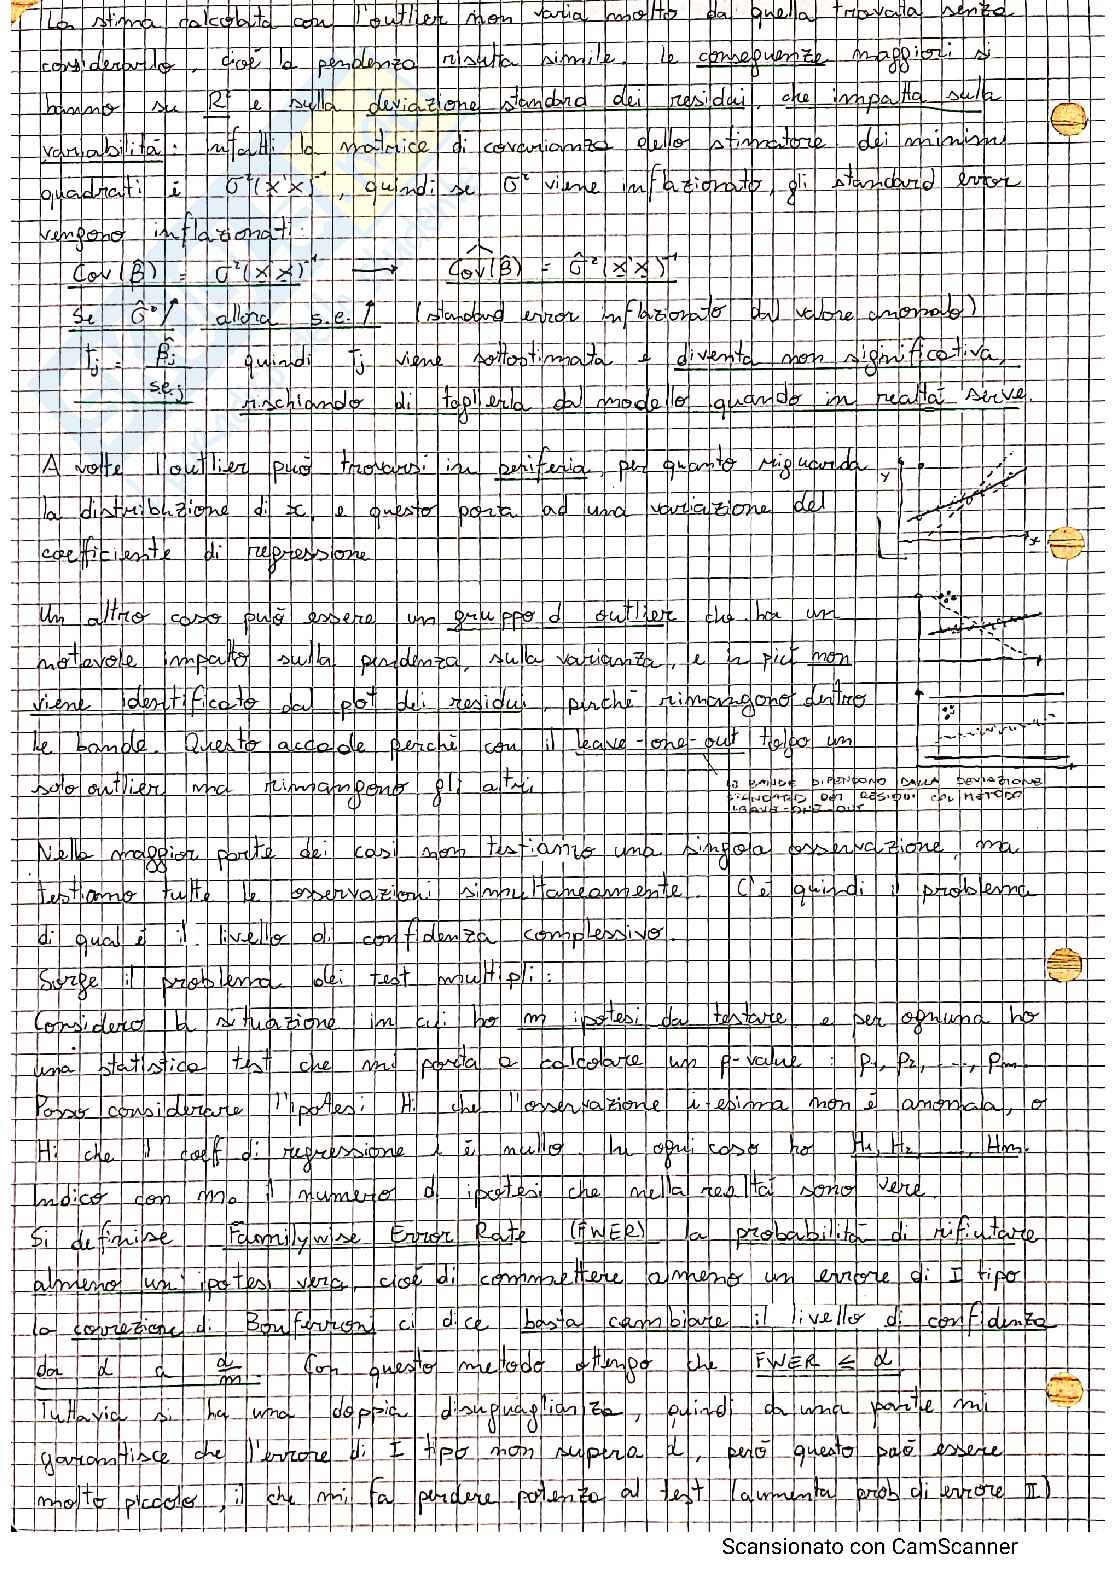 La stima calcolata con l'outlier non varia molto da quella trovata senza
considerarlo, cioè la pendenza risulta simile. Le conseguenze maggiori si
hanno su R² e sulla deviazione standard dei residui, che impatta sulla
variabilità: infatti la matrice di covarianza dello stimatore dei minimi
quadrati è σ²(X'X)⁻¹, quindi se σ² viene inflazionato, gli standard error
vengono inflazionati:
Cov(β̂) = σ²(X'X)⁻¹ → Ĉov(β̂) = σ̂²(X'X)⁻¹
Se σ̂²↑ allora s.e.↑ (standard error inflazionato dal valore anomalo)
tj = β̂j / se.j quindi Tj viene sottostimata e diventa non significativa,
rischiando di toglierla dal modello quando in realtà serve.
A volte l'outlier può trovarsi in periferia, per quanto riguarda
la distribuzione di x, e questo porta ad una variazione del
coefficiente di regressione
y
x
Un altro caso può essere un gruppo di outlier che ha un
notevole impatto sulla pendenza, sulla varianza, e in più non
viene identificato dal plot dei residui, perché rimangono dentro
le bande. Questo accade perché con il leave-one-out tolgo un
solo outlier, ma rimangono gli altri.
LE BANDE DIPENDONO DALLA DEVIAZIONE
STANDARD DEI RESIDUI COL METODO
LEAVE-ONE-OUT
Nella maggior parte dei casi non testiamo una singola osservazione, ma
testiamo tutte le osservazioni simultaneamente. C'è quindi il problema
di qual è il livello di confidenza complessivo.
Sorge il problema dei test multipli:
Considero la situazione in cui ho m ipotesi da testare e per ognuna ho
una statistica test che mi porta a calcolare un p-value: p₁, p₂, ..., pm.
Posso considerare l'ipotesi Hi che l'osservazione i-esima non è anomala, o
Hi che il coeff di regressione i è nullo. In ogni caso ho H₁, H₂, ..., Hm.
Indico con m₀ il numero di ipotesi che nella realtà sono vere.
Si definise Familywise Error Rate (FWER) la probabilità di rifiutare
almeno un'ipotesi vera, cioè di commettere almeno un errore di I tipo
La correzione di Bonferroni ci dice basta cambiare il livello di confidenza
da α a α/m. Con questo metodo ottengo che FWER ≤ α
Tuttavia si ha una doppia disuguaglianza, quindi da una parte mi
garantisce che l'errore di I tipo non supera α, però questo può essere
molto piccolo, il che mi fa perdere potenza al test (aumenta prob di errore II)
Scansionato con CamScanner